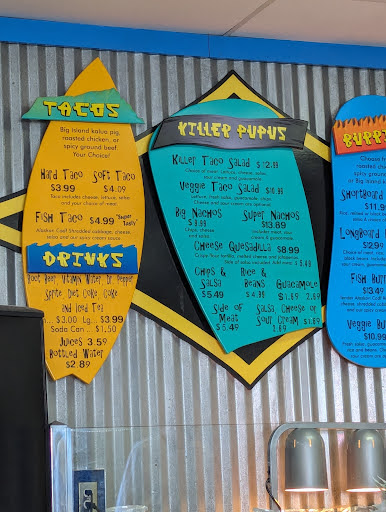 TACOS
Big island kalua pig,
roasted chicken, or
spicy ground beef.
Your Choice!
Hard Taco Soft Taco
$3.99 $4.09
Taco includes cheese, lettuce, salsa
and your choice of meat
Fish Taco $4.99 "Super Tasty"
Alaskan Cod, Shredded cabbage, cheese,
salsa and our spicy cream sauce
DRINKS
Root Beer, Vitamin Water, Dr. Pepper
Sprite, Diet Coke, Coke
and Iced Tea
$3.00 Lg. $3.99
Soda Can .. $1.50
Juices 3.59
Bottled Water
$2.89
KILLER PUPUS
Killer Taco Salad
Choice of meat, lettuce, cheese, salsa,
sour cream and guacamole
Veggie Taco Salad
Lettuce, fresh salsa, guacamole, chips,
cheese and sour cream
Big Nachos Super Nachos
$13.89
Chips, cheese
and salsa
Includes meat, sour
cream & guacamole
Cheese Quesadilla $8.99
Crispy flour tortilla, melted cheese and jalapenos
Side of salsa included. Add meat
Chips & Rice &
Salsa Beans Guacamole
$5.49
Side of Salsa Cheese or
Meat Sour Cream
$5.49
BURR
Choose fr
roasted
spicy gr
or Big Island
Shortboard
$11.9
Longboard
$12.9
Fish Burr
$13.49
Veggie Bu
$10.99